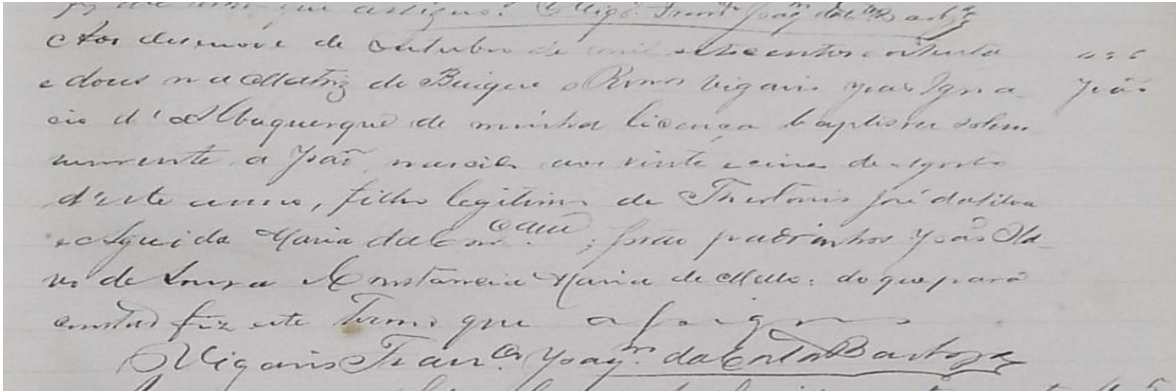 que assigno. O Vigº. Franco. Joaqm. da Cta. Barbza
Aos desenove de outubro de mil oitocentos e oitenta
e dous na Matriz de Buique o Rmo. Vigario João Igna
João
cio d'Albuquerque de minha licença baptisou solem
nemente a João, nascido aos vinte e cinco de Agosto
d'este anno, filho legitimo de Theotonio José da Silva
e Agueida Maria da Comcão.; forão padrinhos João Ola
vo de Souza e Constancia Maria de Mello: do que para
constar fiz este termo que assigno
O Vigario Franco. Joaqm. da Costa Barboza